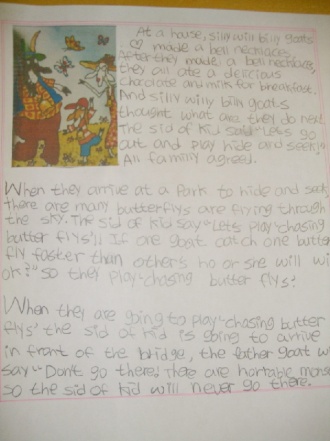 At a house, silly willy billy goats
made a bell necklaces.
After they made a bell necklaces,
they all ate a delicious
choclate and milk for breakfast.
And silly willy billy goats
thought what are they do next.
The sid of kid said "Lets go
out and play hide and seek".
All familly agreed.
When they arrive at a Park to hide and seek,
there are many butterflys are flying through
the sky. The sid of kid say "Lets play 'chasing
butter flys'!! If one goat catch one butter
fly faster than others ho or she will wi
ok?" so they play 'chasing butter flys'.
When they are going to play 'chasing butter
flys' the sid of kid is going to arrive
in front of the bridge, the father goat w
say "Don't go there! There are horrable mons
so the sid of kid will never go there.